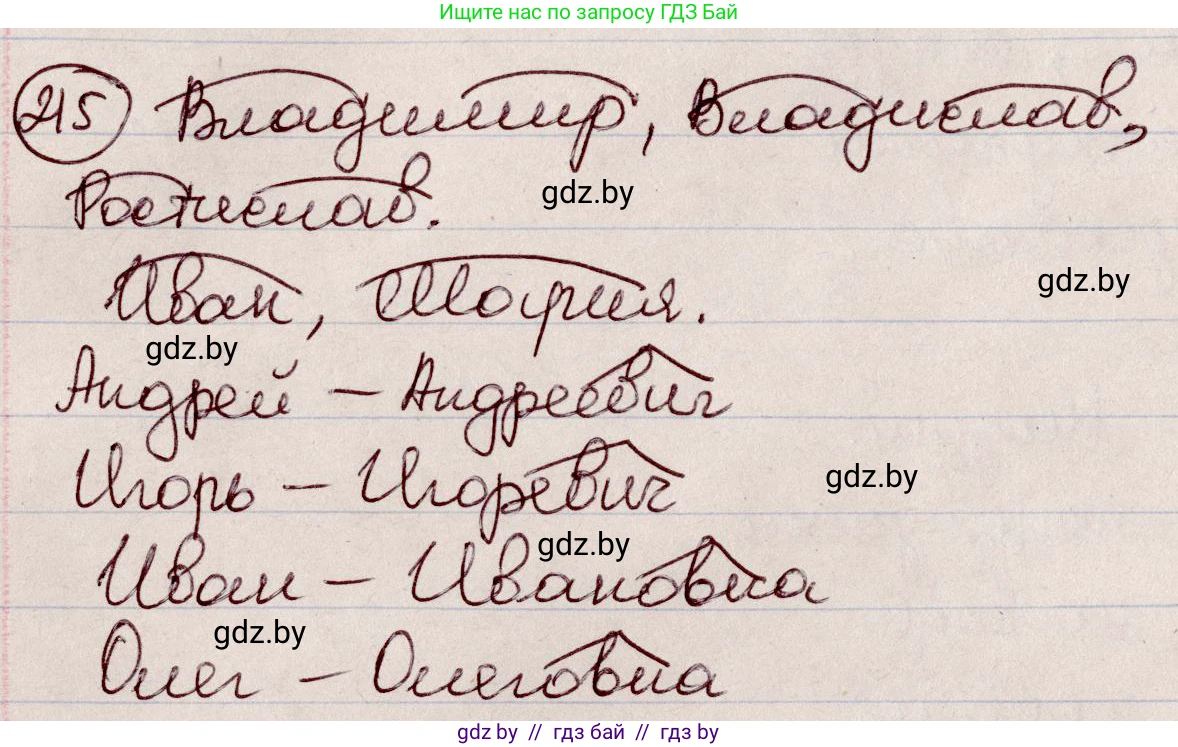 Ищите нас по запросу ГДЗ Бай
215 Владимир, Владислав,
Ростислав.
gdz.by
Иван, Мария.
gdz.by
gdz.by
Андрей – Андреевич
Игорь – Игоревич
gdz.by
gdz.by
Иван – Ивановна
gdz.by
Олег – Олеговна
gdz.by // гдз бай // гдз by